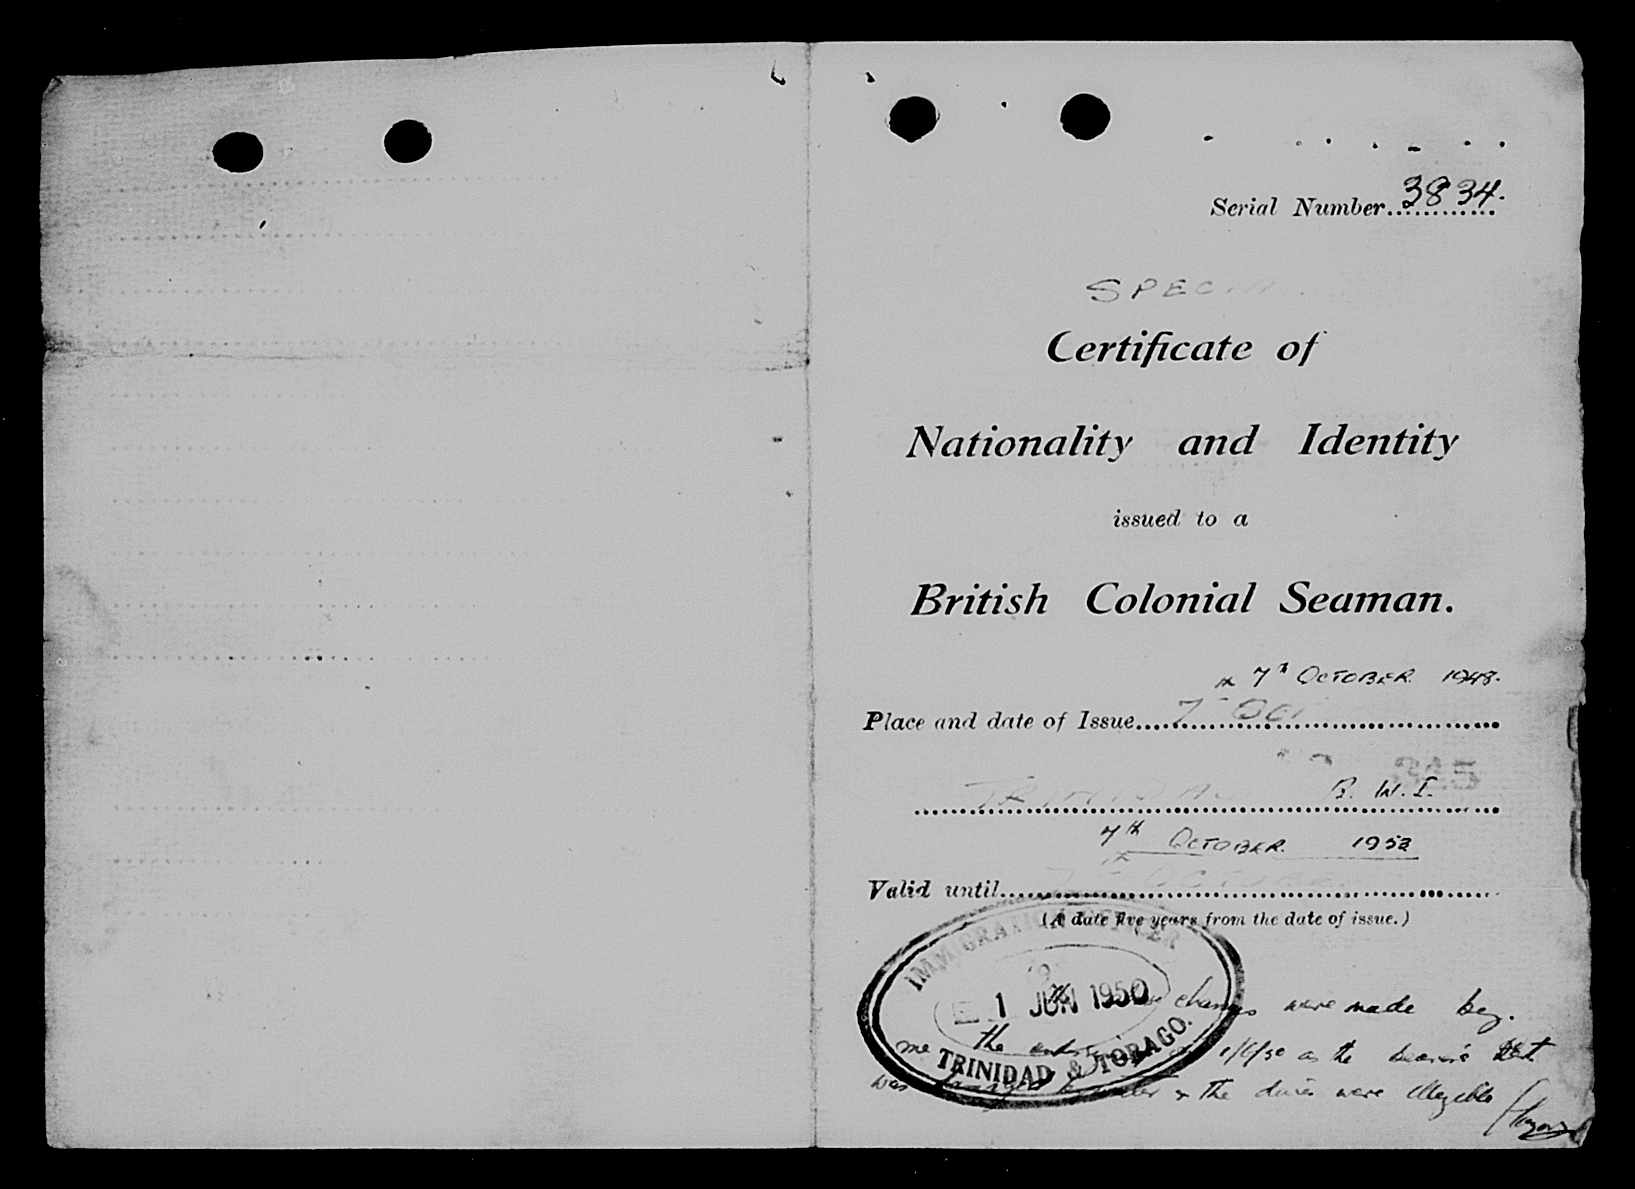 Serial Number 3834.
SPECI
Certificate of
Nationality and Identity
issued to a
British Colonial Seaman.
7th OCTOBER 1948.
Place and date of Issue 7 Oct
325
B. W. I.
7th OCTOBER. 1953
Valid until
(A date five years from the date of issue.)
IMMIGRATION OFFICER
1 JUN 1950
TRINIDAD & TOBAGO.
the changes were made by
me the 1/6/50 as the bearer's
was water & the dates were illegible